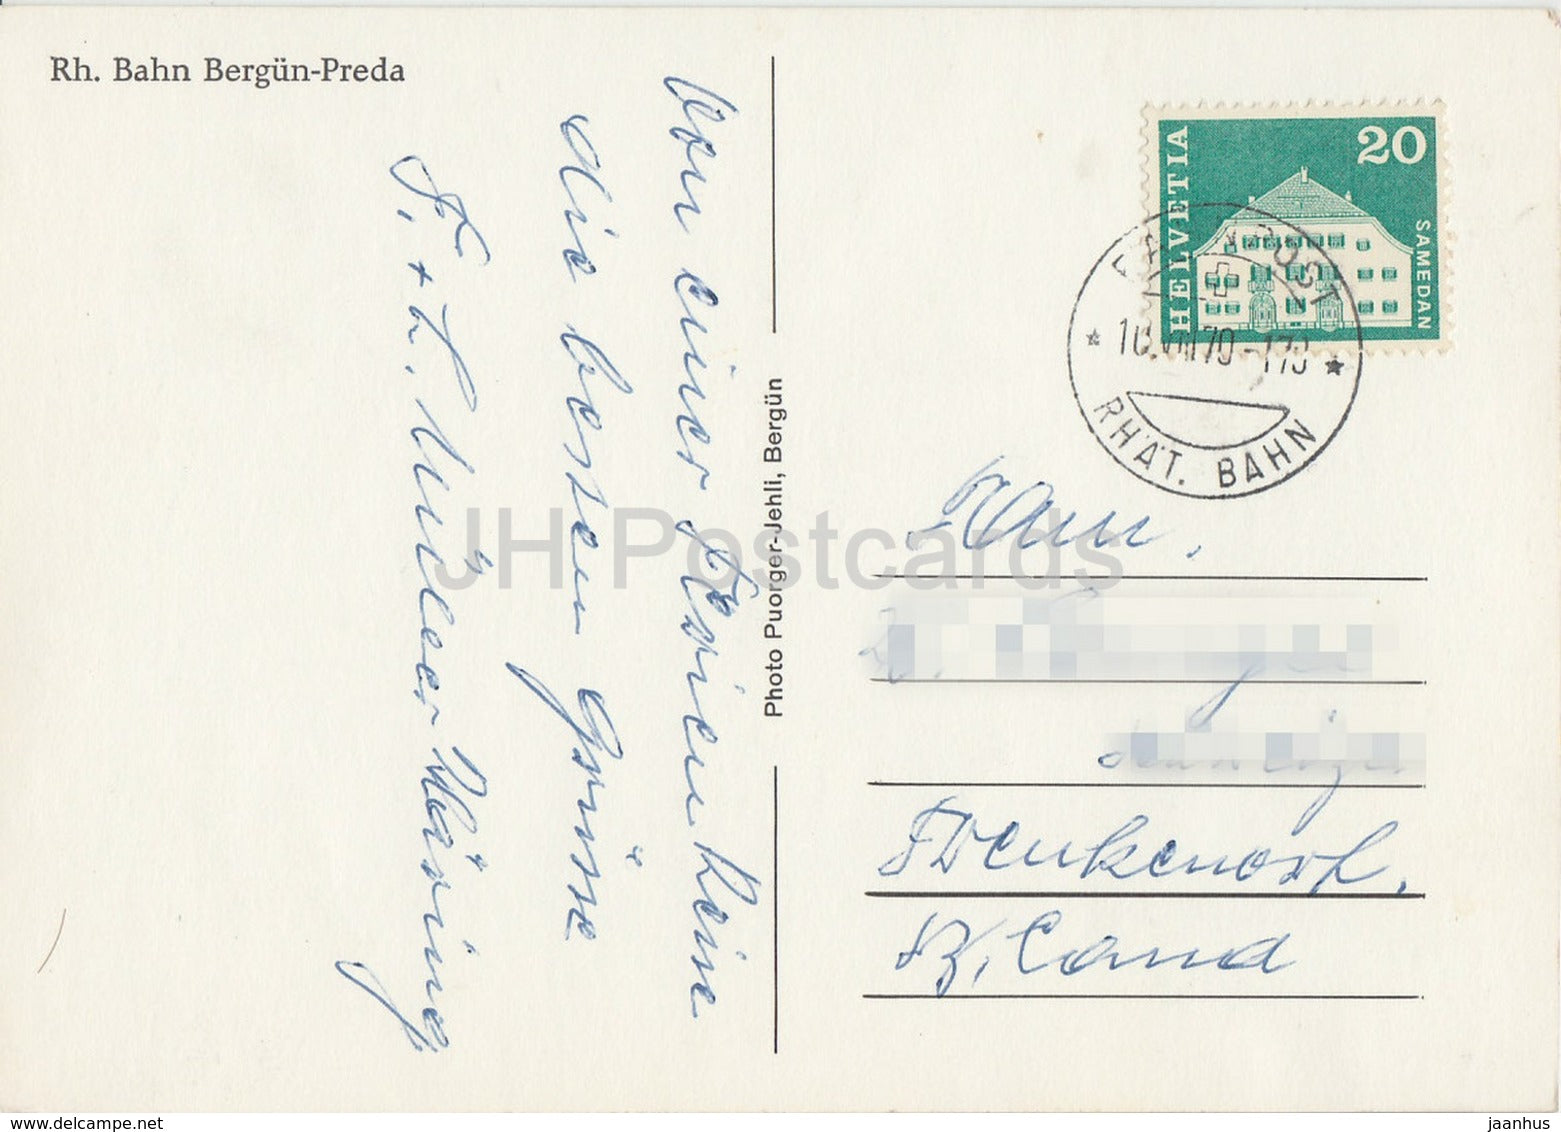 Rh. Bahn Bergün-Preda
Von einer Ferien Reise
die besten Grüsse
F. + L. Müller Häring
Photo Puorger-Jehli, Bergün
HELVETIA
20
SAMEDAN
BAHNPOST
RHÄT. BAHN
Frau.
Frenkendorf.
Bz, Land
JH Postcards
www.delcampe.net
jaanhus